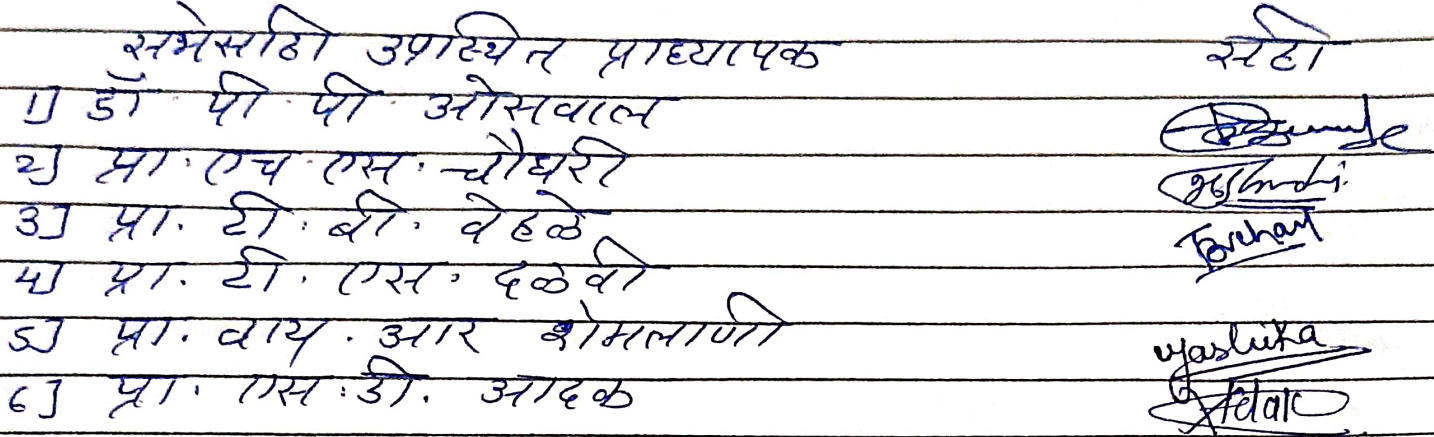 सभेसाठी उपस्थित प्राध्यापक सही
1] डॉ. पी. पी. ओसवाल
2] प्रा. एच. एस. चौधरी
3] प्रा. टी. बी. वेहळे
4] प्रा. टी. एस. दळवी
5] प्रा. वाय. आर शेमलाणी Yashika
6] प्रा. एस. डी. आदक